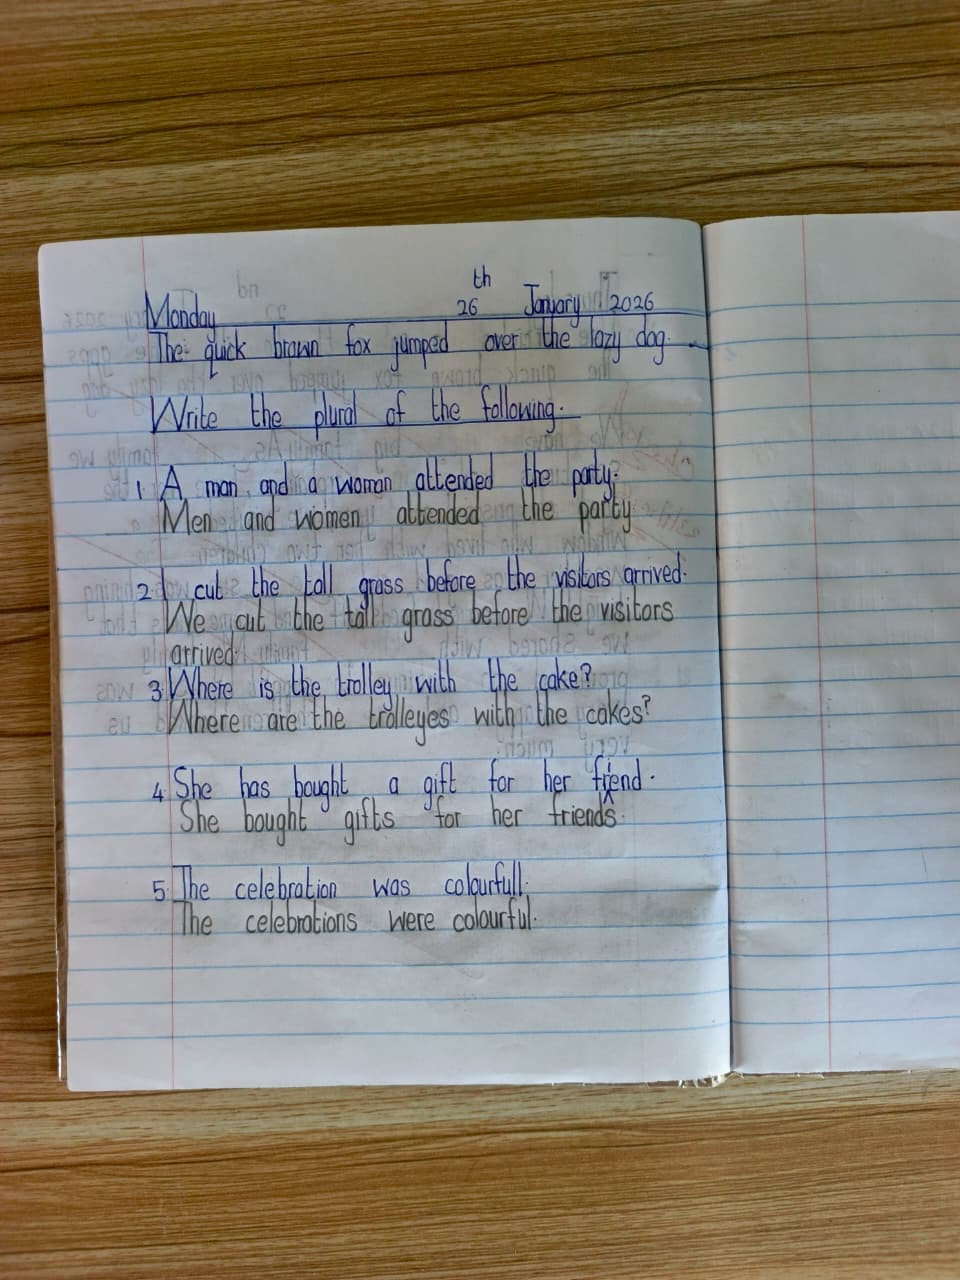 th
Monday 26 January 2026
The quick brown fox jumped over the lazy dog.
Write the plural of the following.
1 A man and a woman attended the party.
Men and women attended the party
2 I cut the tall grass before the visitors arrived.
We cut the tall grass before the visitors
arrived
3 Where is the trolley with the cake?
Where are the trolleyes with the cakes?
4 She has bought a gift for her friend.
She bought gifts for her friends.
5 The celebration was colourfull.
The celebrations were colourful.